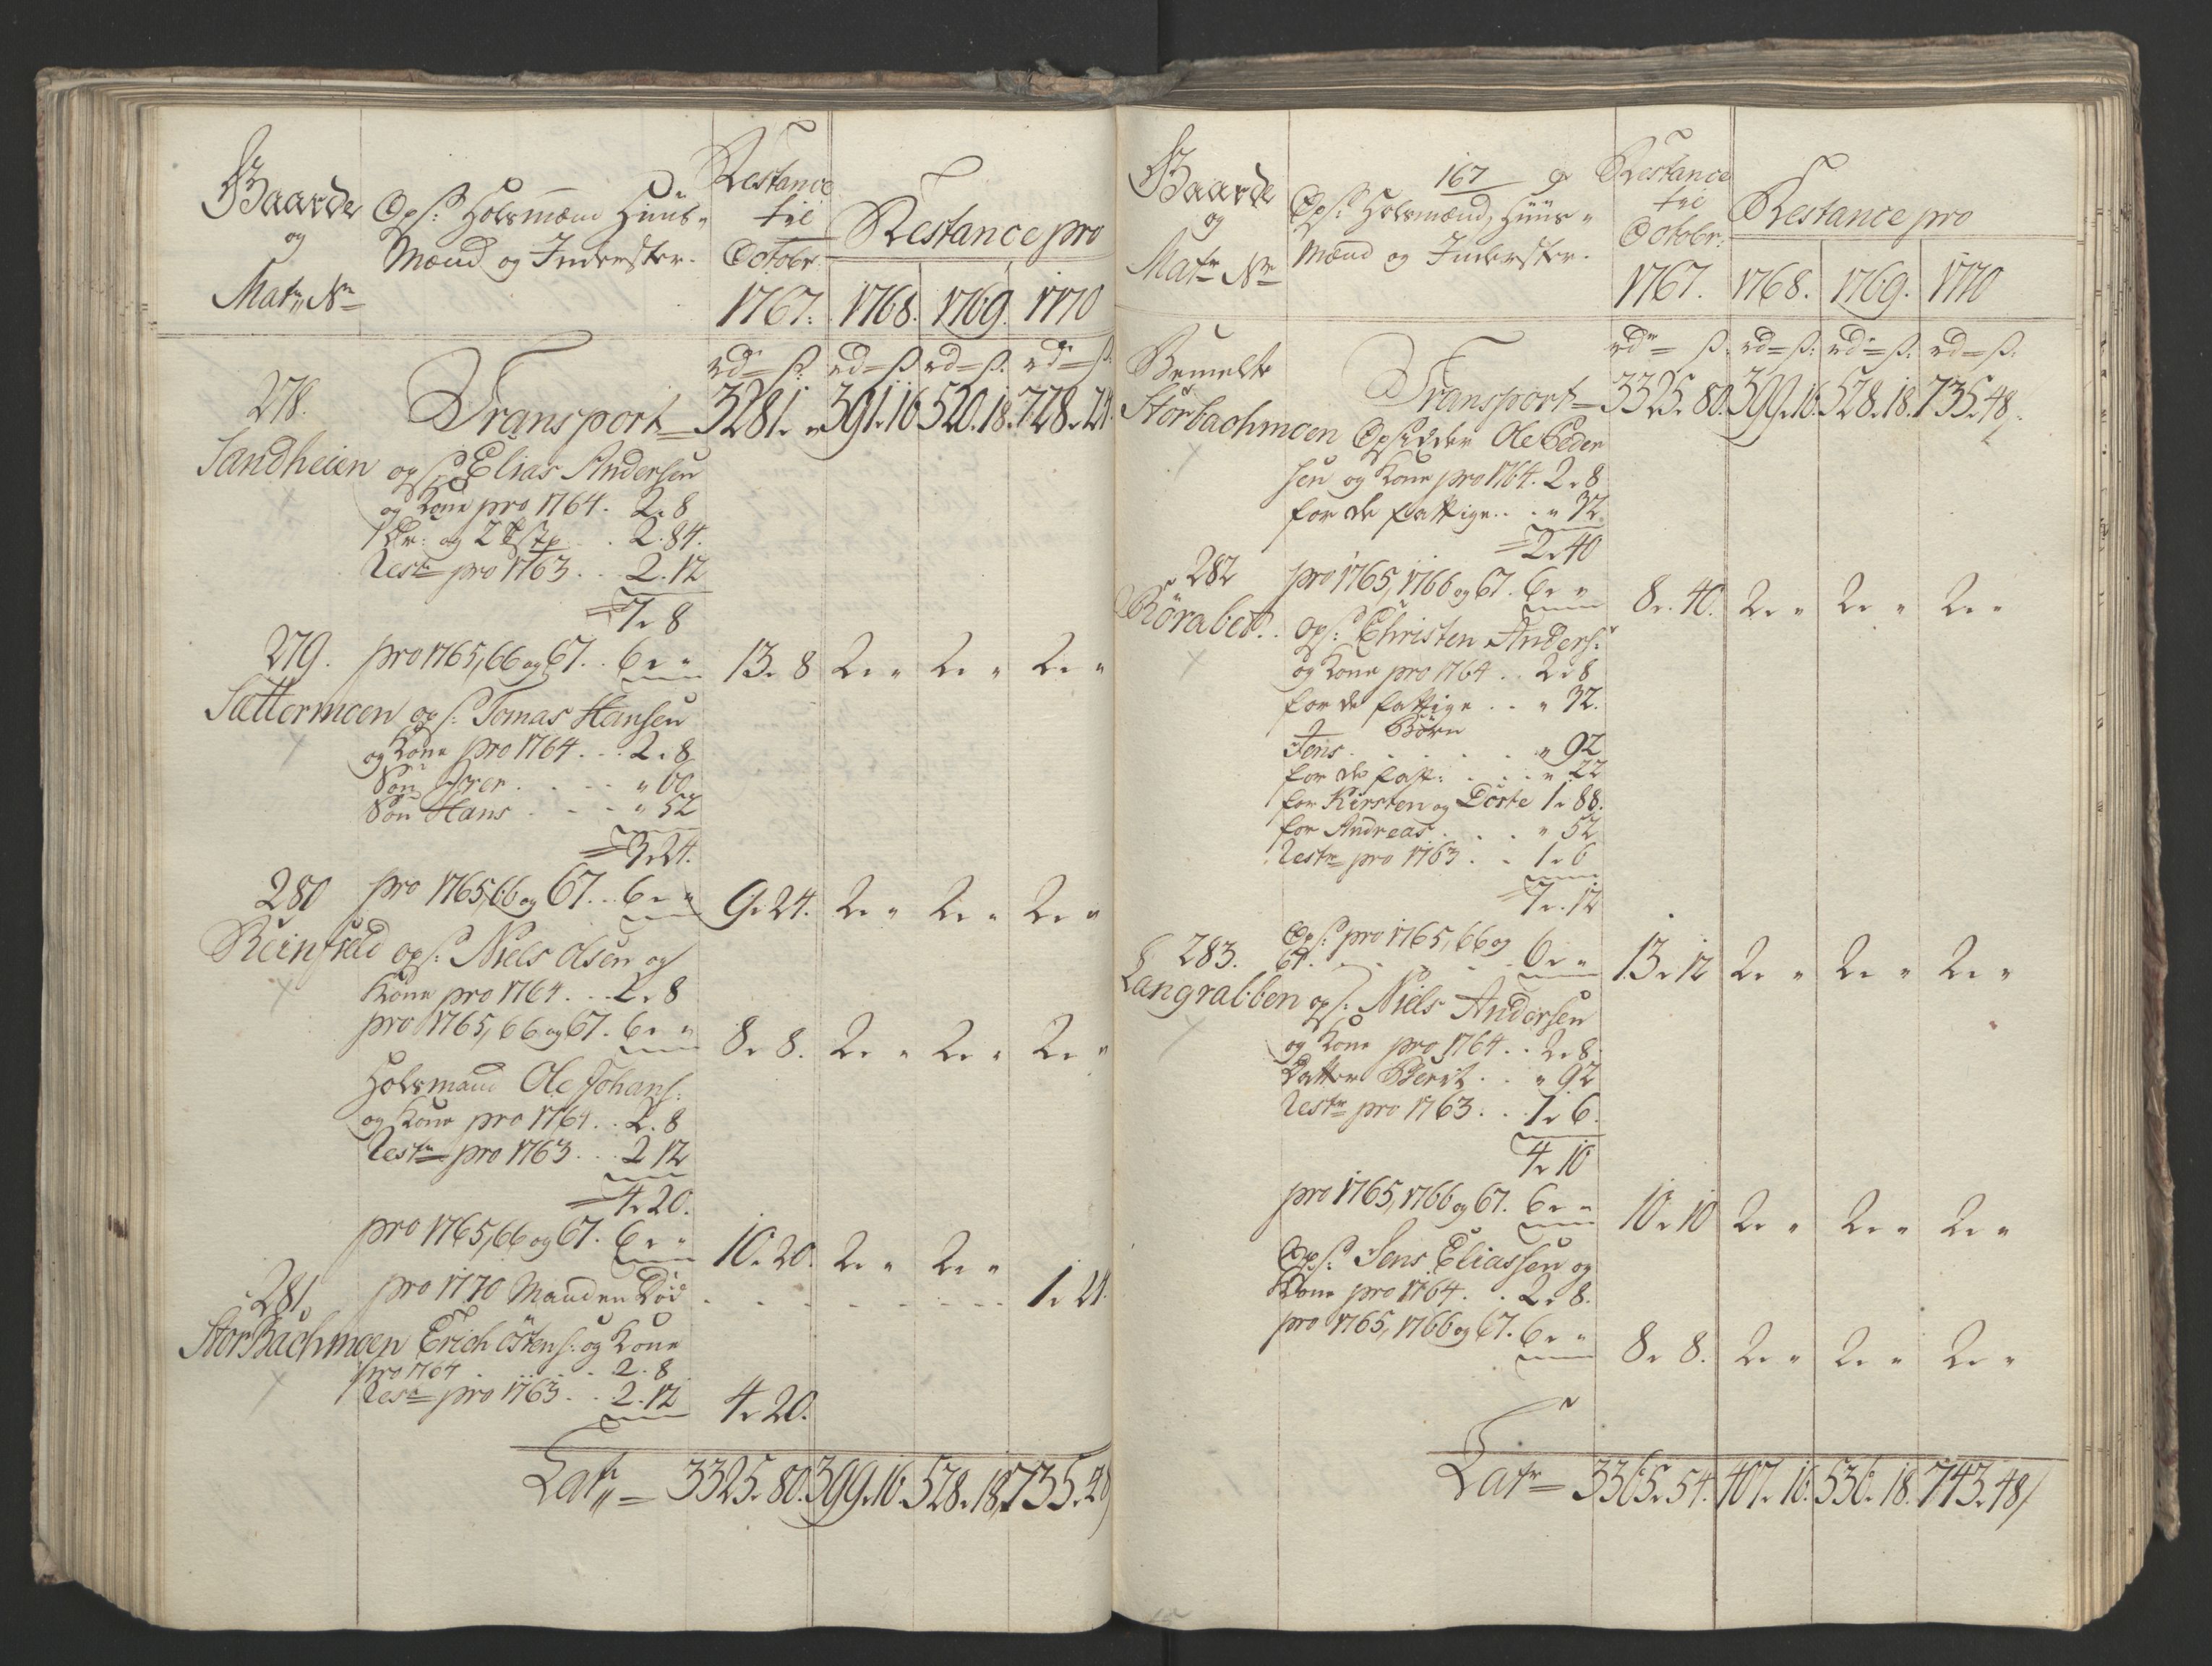 Gaarde
og
Matr. No
Ops: Holsmænd Huus-
Mænd og Inderster.
Restance
til
Octobr:
1767.
Restance pro
1768. 1769. 1770
rd ß: rd ß rd ß: rd ß:
278.
Transport 3281. " 391. 16 520. 18. 728. 24.
Sandheien ops: Elias Andersen
og Kone pro 1764. 2. 8
2. 84.
Rest pro 1763 . . 2. 12
7. 8
279. pro 1765, 66 og 67. . 6. " 13. 8 2. " 2. " 2. "
Sættermoen ops: Tomas Hansen
og Kone pro 1764 . . . 2. 8
Søn Iver . . . " 60
Søn Hans . . . " 52
3. 24.
280 pro 1765, 66 og 67. . 6. " 9. 24. 2. " 2. " 2. "
Reinfield ops: Niels Olsen og
Kone pro 1764 . . . 2. 8
pro 1765, 66 og 67. 6. " 8. 8. 2. " 2. " 2. "
Holsmand Ole Johans:
og Kone pro 1764 . . 2. 8
Rest pro 1763 . . . 2 12
4. 20.
pro 1765, 66 og 67. 6. " 10. 20. 2. " 2. "
281 pro 1770 Manden Død . . . . . . . . 1. 24.
StorBachmoen Erich Østens: og Kone
pro 1764 . . . . . 2. 8
Rest pro 1763 . . 2. 12 4. 20.
Latr 3325. 80. 399. 16. 528. 18. 735. 48
167
Gaarde
og
Matr No
Ops: Holsmænd, Huus-
Mænd og Inderster.
Restance
til
Octobr:
1767.
Restance pro
1768. 1769. 1770
rd ß. rd ß: rd ß: rd ß:
Bemelte
Transport 3325. 80. 399. 16. 528. 18. 735. 48.
Storbachmoen Opsidder Ole Peder
sen og Kone pro 1764. 2. 8
for de fattige . . . " 32.
2. 40
282 pro 1765, 1766 og 67. 6. " 8. 40. 2. " 2. " 2. "
Børabet. . ops: Christen Anders:
og Kone pro 1764 . . 2. 8
for de fattige . . " 32.
Børn
Jens . . . . . . " 92
for de fatt: . . . " 22
for Kirsten og Dorte 1. 88.
for Andreas . . . " 52
Rest pro 1763 . . 1. 6
7. 12
283. Ops: pro 1765, 66 og
67. . . . . . 6. " 13. 12 2. " 2. " 2. "
Langrabben ops: Niels Andersen
og Kone pro 1764 . . 2. 8.
Datter Berit . . " 92
Rest pro 1763 . . . 1. 6.
4. 10
pro 1765, 1766 og 67. 6. " 10. 10 2. " 2. " 2. "
Ops: Jens Eliassen og
Kone pro 1764 . . 2. 8.
pro 1765, 1766 og 67. 6. " 8. 8. 2. " 2. " 2. "
Latr 3365. 54. 407. 16. 536. 18. 743. 48